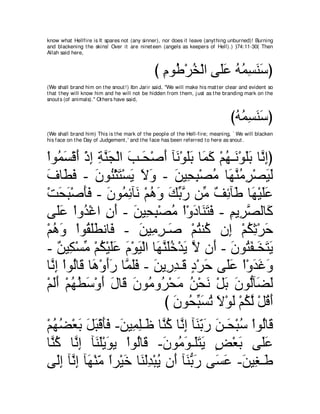 know what Hellfire is It spares not (any sinner), nor does it leave (anything unburned)! Burning
and blackening the skins! Over it are nineteen (angels as keepers of Hell).) )74:11-30( Then
Allah said here,
﴿ سَنَسِمُهُ عَلَى الْخُرْطُومِ ﴾
(We shall brand him on the snout!) Ibn Jarir said, "We will make his matter clear and evident so
that they will know him and he will not be hidden from them, just as the branding mark on the
snouts (of animals)." Others have said,
﴿سَنَسِمُهُ﴾
(We shall brand him) This is the mark of the people of the Hell-fire; meaning, `We will blacken
his face on the Day of Judgement,' and the face has been referred to here as snout.
﴿إِنَّا بَلَوْنَـهُمْ كَمَا بَلَوْنَآ أَصْحَـبَ الْجَنَّةِ إِذْ أَقْسَمُواْ
لَيَصْرِمُنَّهَا مُصْبِحِينَ - وَلاَ يَسْتَثْنُونَ - فَطَافَ
عَلَيْهَا طَآئِفٌ مِّن رَّبِّكَ وَهُمْ نَآئِمُونَ - فَأَصْبَحَتْ
كَالصَّرِيمِ - فَتَنَادَوْاْ مُصْبِحِينَ - أَنِ اغْدُواْ عَلَى
حَرْثِكُمْ إِن كُنتُمْ صَـرِمِينَ - فَانطَلَقُواْ وَهُمْ
يَتَخَـفَتُونَ - أَن لاَّ يَدْخُلَنَّهَا الْيَوْمَ عَلَيْكُمْ مِّسْكِينٌ -
وَغَدَوْاْ عَلَى حَرْدٍ قَـدِرِينَ - فَلَمَّا رَأَوْهَا قَالُواْ إِنَّا
لَضَآلُّونَ - بَلْ نَحْنُ مَحْرُومُونَ قَالَ أَوْسَطُهُمْ أَلَمْ
أَقُلْ لَّكُمْ لَوْلاَ تُسَبِّحُونَ ﴾
قَالُواْ سُبْحَـنَ رَبِّنَآ إِنَّا كُنَّا ظَـلِمِينَ- فَأَقْبَلَ بَعْضُهُمْ
عَلَى بَعْضٍ يَتَلَـوَمُونَ- قَالُواْ يوَيْلَنَآ إِنَّا كُنَّا
طَـغِينَ - عَسَى رَبُّنَآ أَن يُبْدِلَنَا خَيْراً مِّنْهَآ إِنَّآ إِلَى